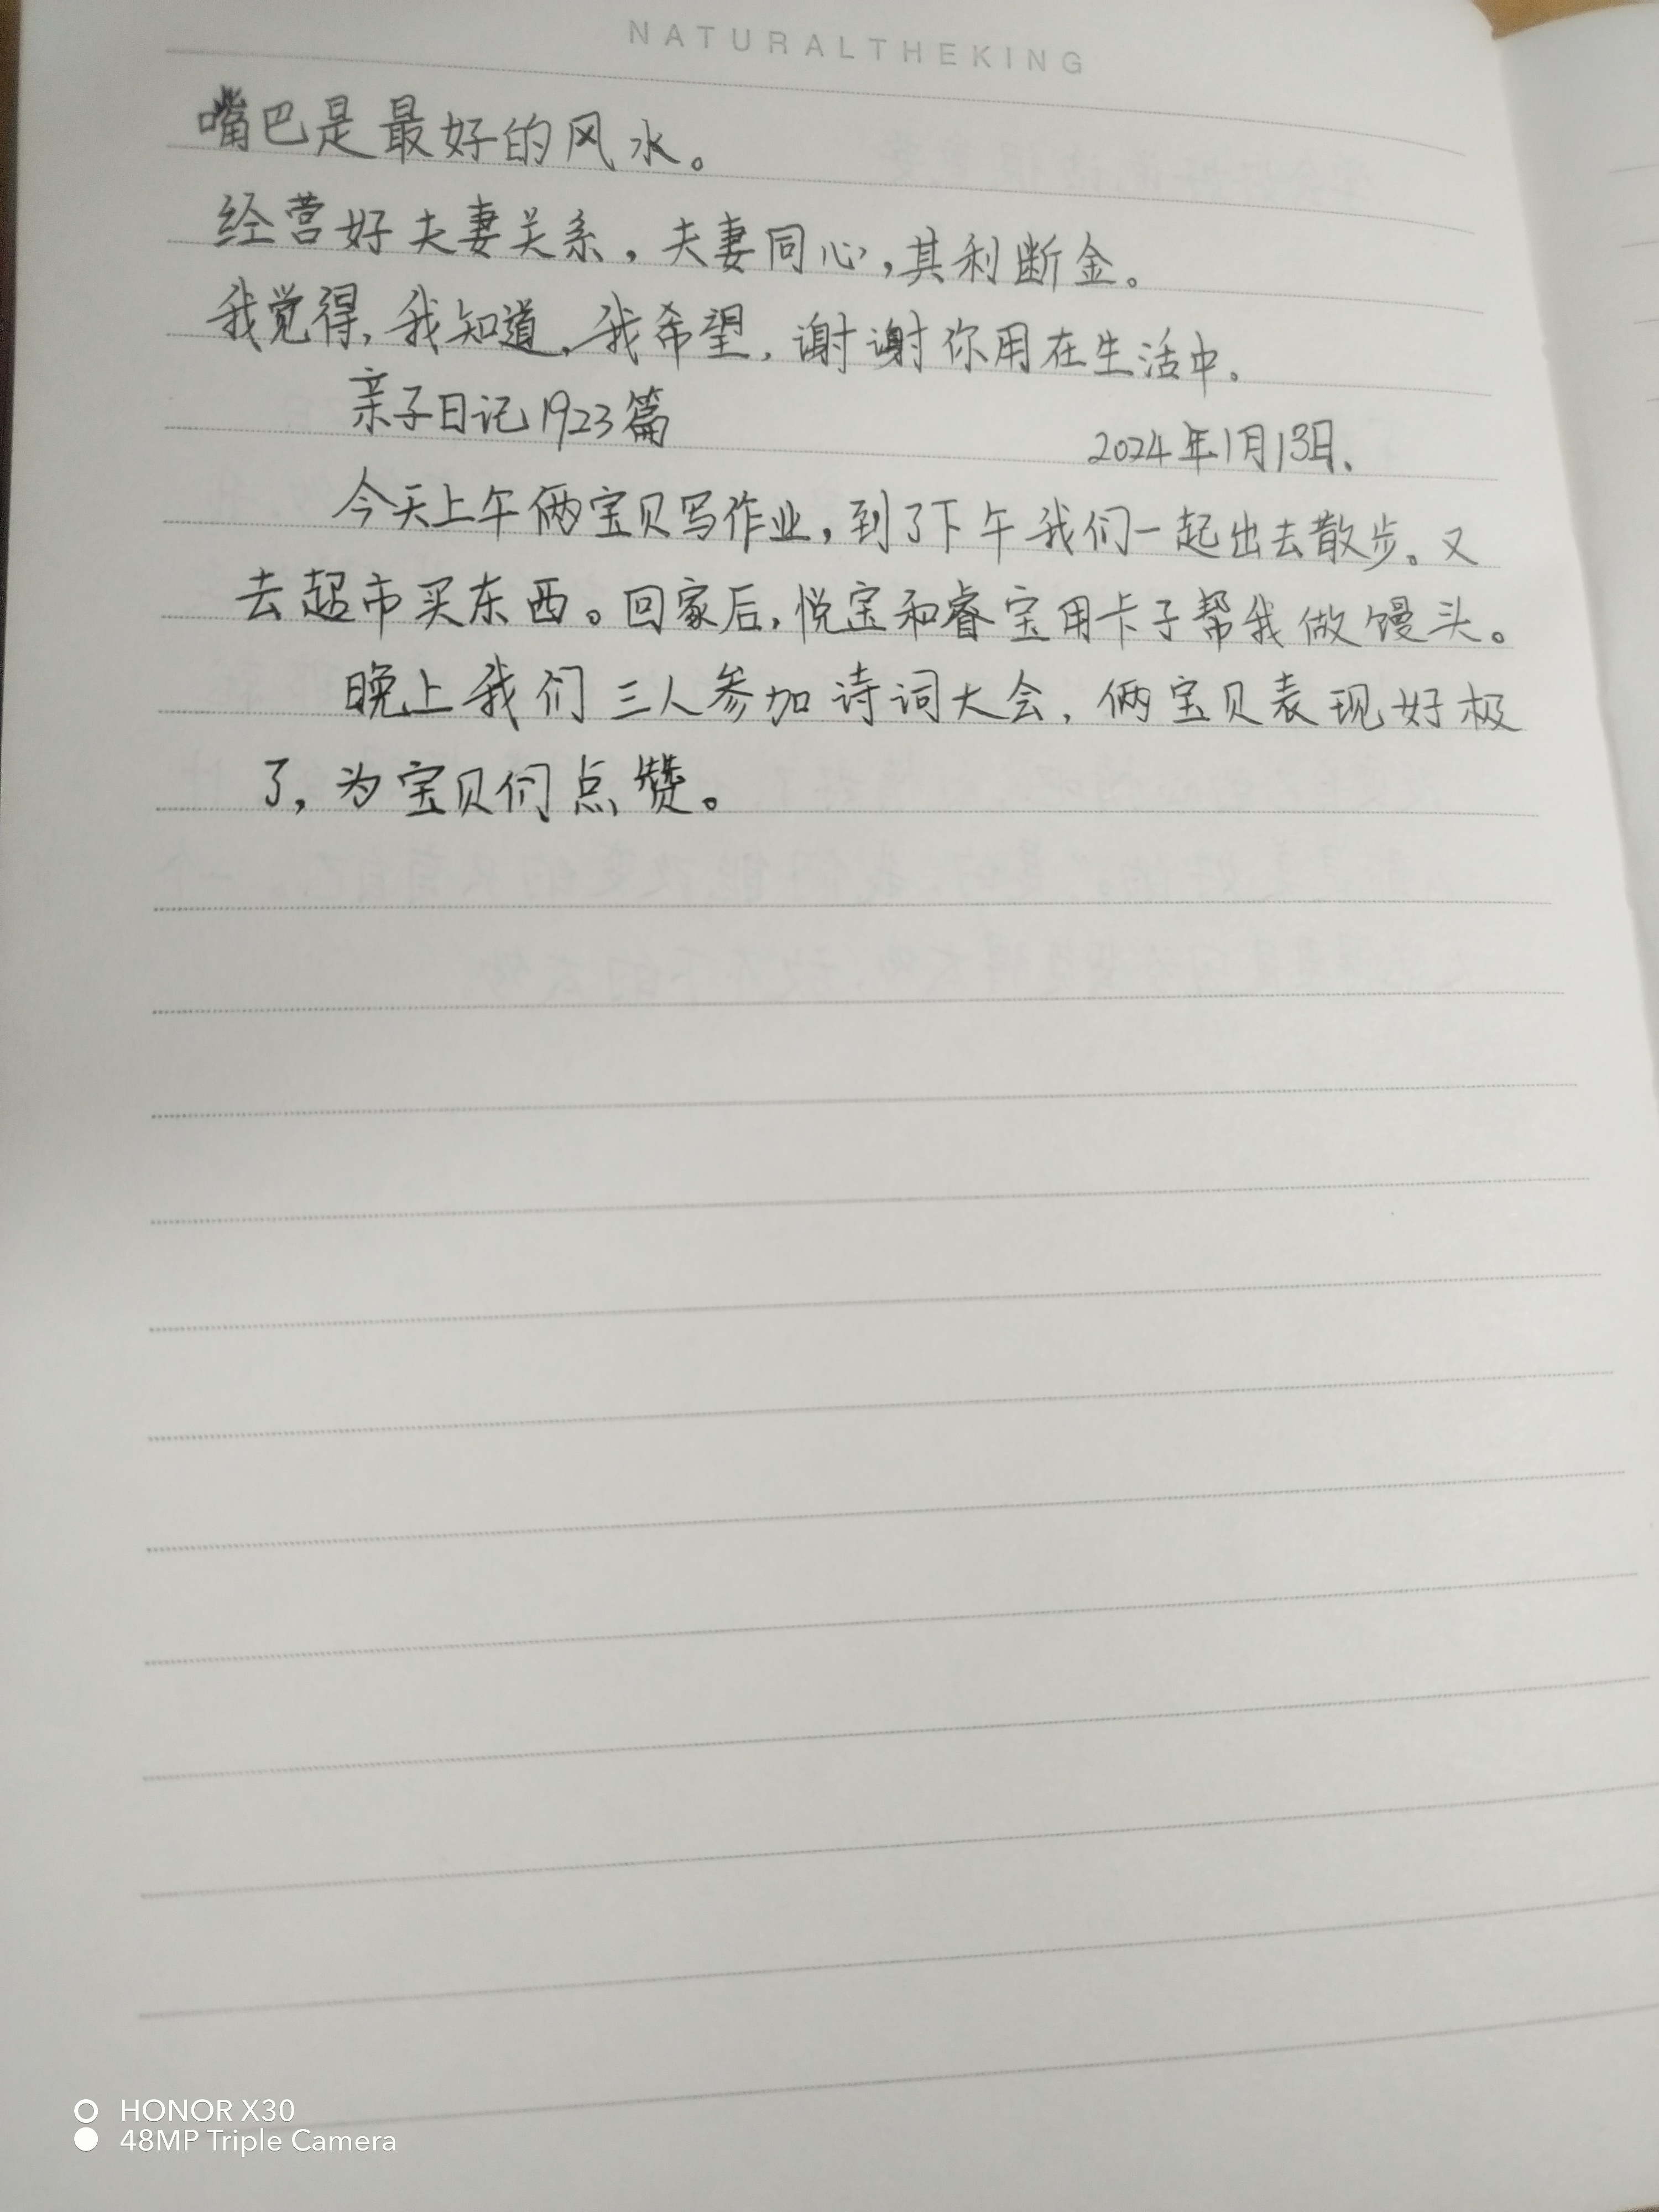 NATURALTHEKING
嘴巴是最好的风水。
经营好夫妻关系，夫妻同心，其利断金。
我觉得，我知道，我希望，谢谢你用在生活中。
亲子日记1923篇 2024年1月13日、
今天上午俩宝贝写作业，到了下午我们一起出去散步。又
去超市买东西。回家后，悦宝和睿宝用卡子帮我做馒头。
晚上我们三人参加诗词大会，俩宝贝表现好极
了，为宝贝们点赞。
HONOR X30
48MP Triple Camera